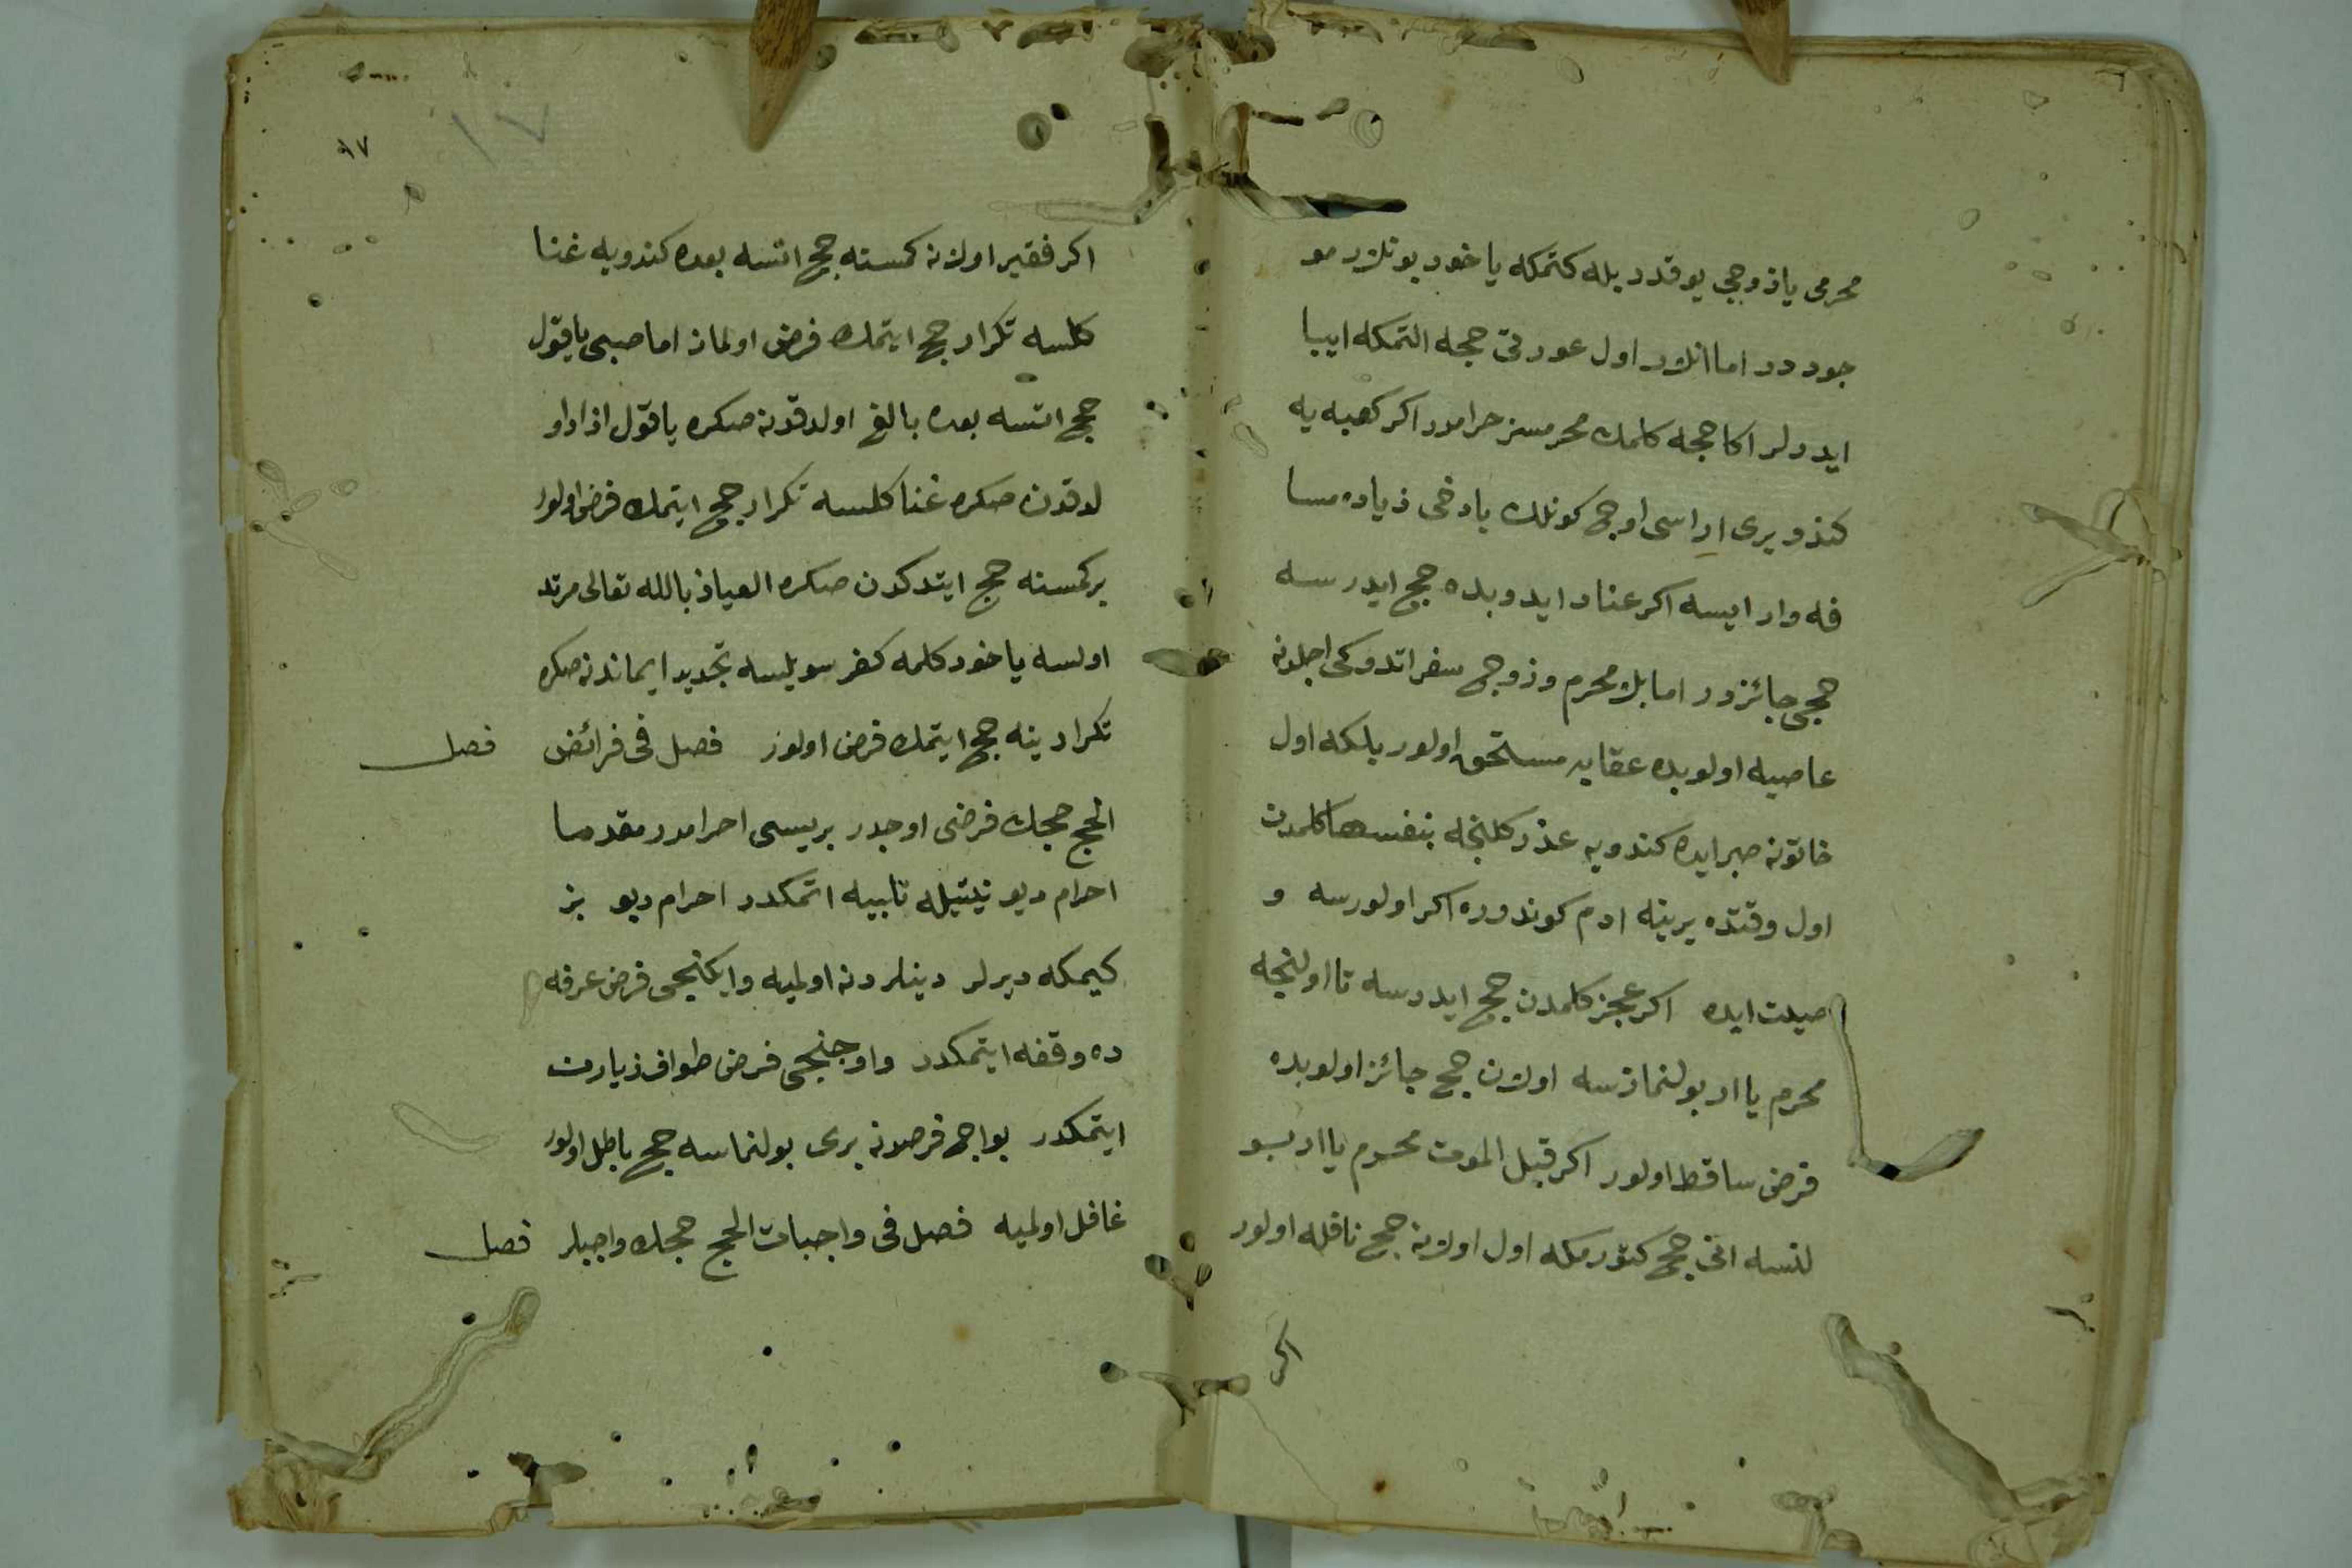 محرمى يا ذوجى يوقدر بله كتمكه ياخود بونلار مو
جود در اما انلار اول عورتى حجه التمكه ايبا
ايدرلر اكا حجه كلمك محرمسز حرامدر اكر كعبه يه
كندو يرى اراسى اوچ كونلك يا دخى ذياده مسا
فه وار ايسه اكر عناد ايدوبده حج ايدرسه
حجى جائزدر اما بلا محرم وذوج سفر اتدوكى اجلدن
عاصيه اولوبده عقابه مستحق اولور بلكه اول
خاتون صبر ايده كندويه عذر كلنجه بنفسها كلمدن
اول وقتده يرينه ادم كوندوره اكر اولورسه و
صيت ايده اكر عجز كلمدن حج ايدرسه تا اولنجه
محرم يا ار بولنمازسه اولان حج جائز اولوبده
فرض ساقط اولور اكر قبل الموت محرم يا ار بو
لنسه انى حج كتورمكه اول اولان حج نافله اولور
اكر
٩٧
١٧
اكر فقير اولان كمسنه حج اتسه بعده كندويه غنا
كلسه تكرار حج ايتمك فرض اولماز اما صبى يا قول
حج اتسه بعده بالغ اولدقدن صكره يا قول ازاد او
لدقدن صكره غنا كلسه تكرار حج ايتمك فرض اولور
بر كمسنه حج ايتدكدن صكره العياذ بالله تعالى مرتد
اولسه ياخود كلمه كفر سويلسه تجديد ايماندن صكره
تكرار ينه حج ايتمك فرض اولور فصل فى فرائض فصل
الحج حجك فرضى اوچدر بريسى احرامدر مقدما
احرام ديو نيتيله تلبيه اتمكدر احرام ديو بز
كيمكه ديرلر دينلردن اولميه وايكنجى فرض عرفه
ده وقفه ايتمكدر واوچنجى فرض طواف زيارت
ايتمكدر بو اوچ فرضدن برى بولنماسه حج باطل اولور
غافل اولميه فصل فى واجبات الحج حجك واجبلر فصل